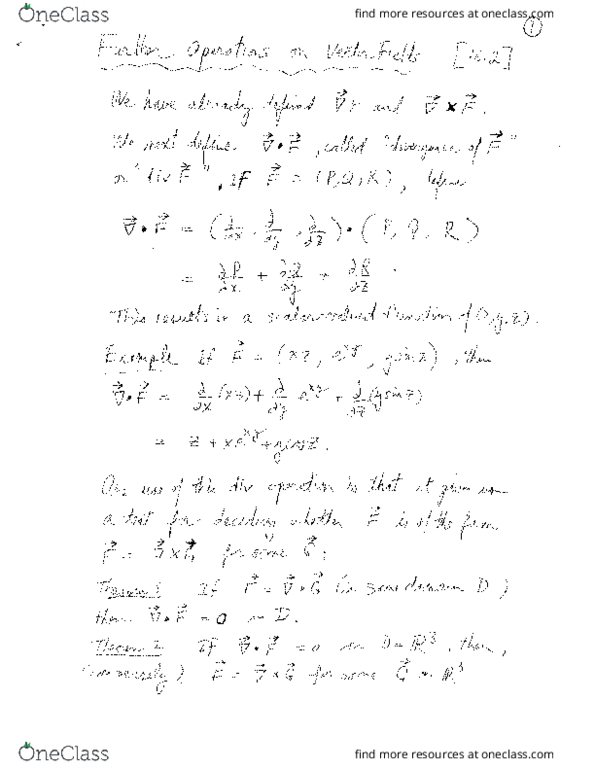 OneClass
find more resources at oneclass.com
1
Further Operations on Vector Fields [16.2]
We have already defined ∇⃗f and ∇⃗ × F⃗.
We next define ∇⃗•F⃗, called "divergence of F⃗"
or "div F⃗". If F⃗ = (P, Q, R), define
∇⃗•F⃗ = (∂/∂x, ∂/∂y, ∂/∂z)•(P, Q, R)
= ∂P/∂x + ∂Q/∂y + ∂R/∂z.
This results in a scalar-valued function of (x,y,z).
Example If F⃗ = (xz, e^xy, y sin z), then
∇⃗•F⃗ = ∂/∂x (xz) + ∂/∂y e^xy + ∂/∂z (y sin z)
= z + xe^xy + y cos z.
One use of the div operation is that it gives us
a test for deciding whether F⃗ is of the form
F⃗ = ∇⃗×G⃗ for some G⃗:
Theorem 1 If F⃗ = ∇⃗×G⃗ (in some domain D)
then ∇⃗•F⃗ = 0 in D.
Theorem 2 If ∇⃗•F⃗ = 0 on D = ℝ³, then,
(conversely) F⃗ = ∇⃗×G⃗ for some G⃗ on ℝ³
OneClass
find more resources at oneclass.com